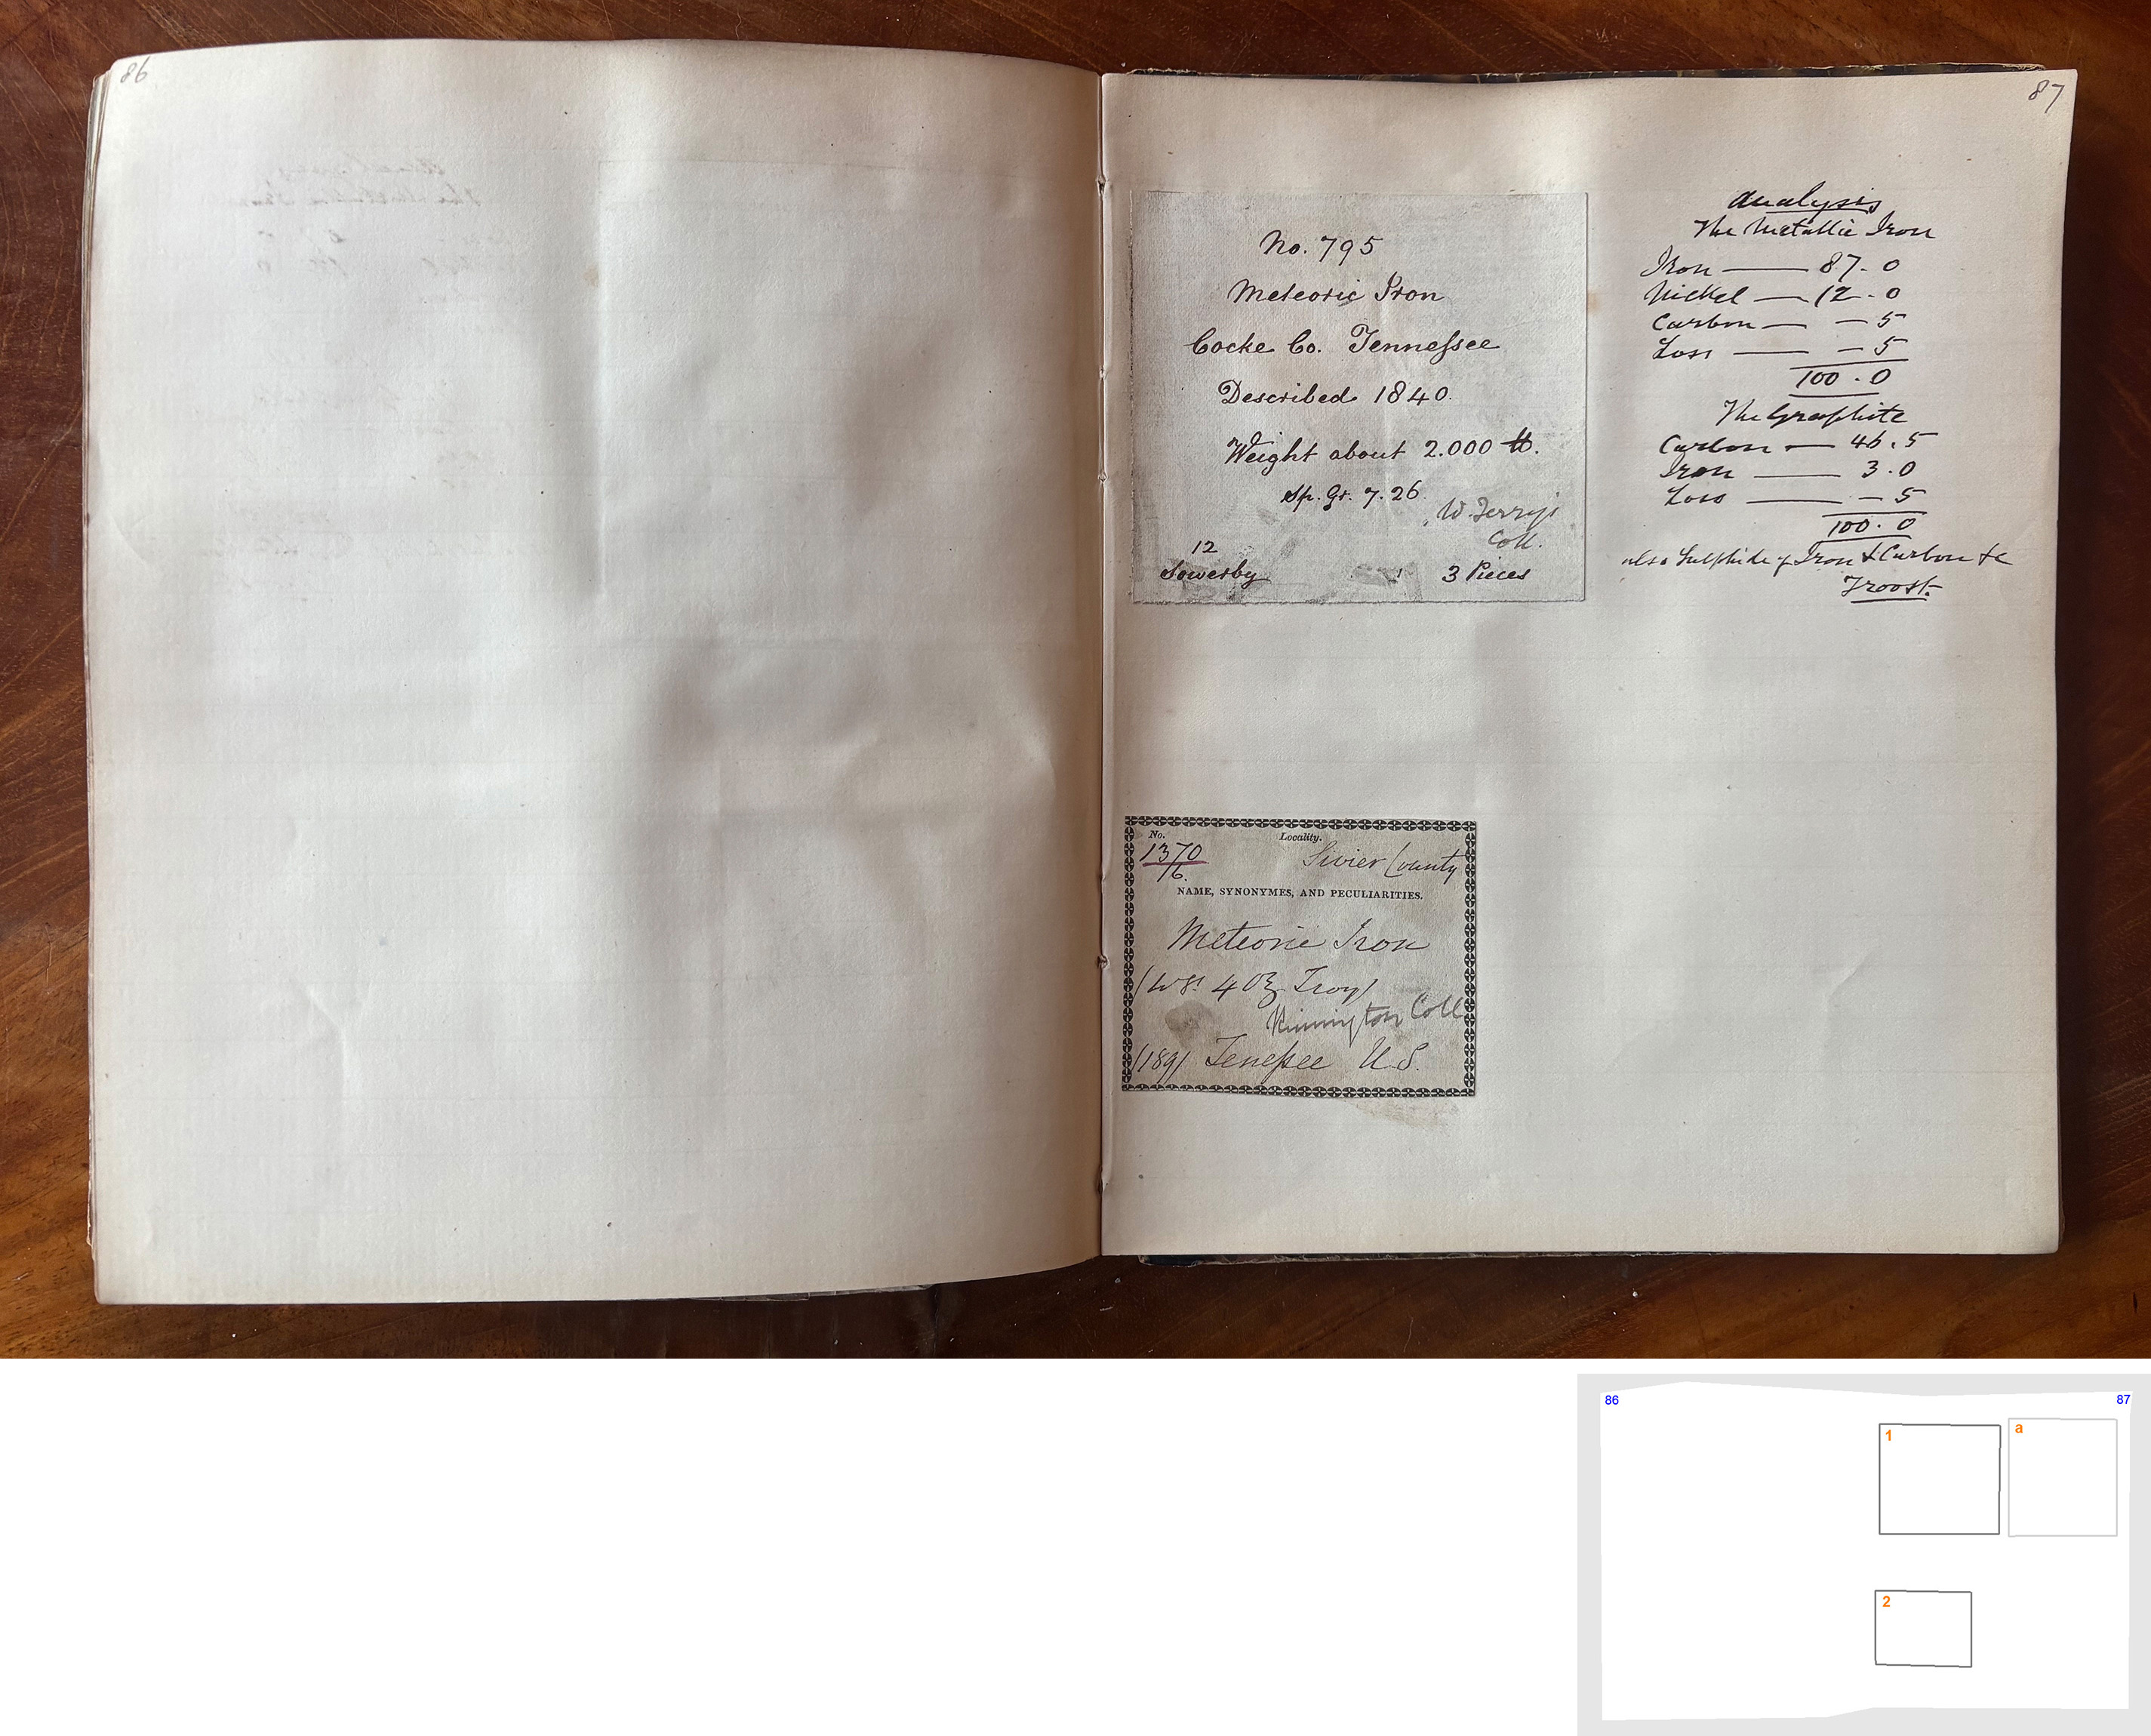 86
87
No. 795
Meteoric Iron
Cocke Co. Tennessee
Described 1840.
Weight about 2.000 lb.
Sp. Gr. 7.26
W. Terry's
Coll.
12
Sowerby
3 Pieces
Analysis
The Metallic Iron
Iron — 87.0
Nickel — 12.0
Carbon — — 5
Loss — — 5
100.0
The Graphite
Carbon — 46.5
Iron — 3.0
Loss — — 5
100.0
also Sulphide of Iron & Carbon &c
Troost.
No.
Locality.
1370
/6.
Sivier County
NAME, SYNONYMES, AND PECULIARITIES.
Meteoric Iron
(Wgt 4 oz Troy)
Coll
(189) Tenessee U.S.
86
87
1
a
2